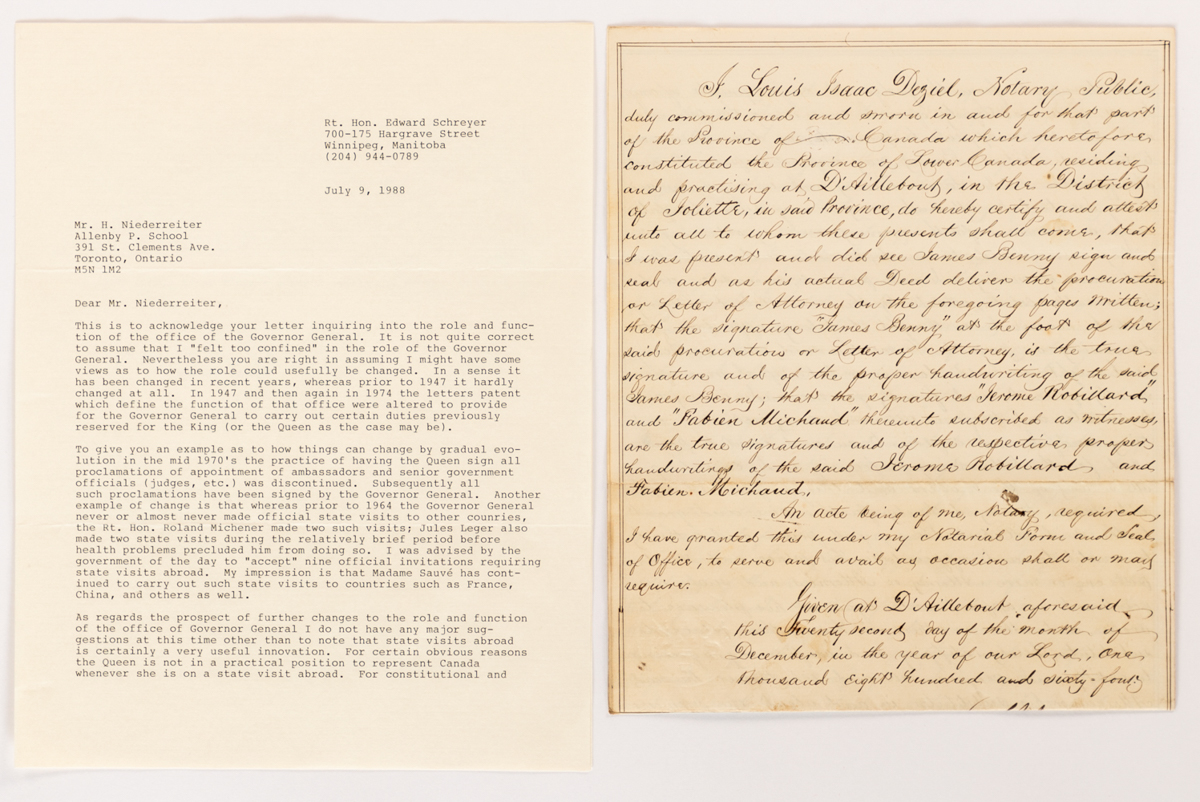 Rt. Hon. Edward Schreyer
700-175 Hargrave Street
Winnipeg, Manitoba
(204) 944-0789
July 9, 1988
Mr. H. Niederreiter
Allenby P. School
391 St. Clements Ave.
Toronto, Ontario
M5N 1M2
Dear Mr. Niederreiter,
This is to acknowledge your letter inquiring into the role and func-
tion of the office of the Governor General.  It is not quite correct
to assume that I "felt too confined" in the role of the Governor
General.  Nevertheless you are right in assuming I might have some
views as to how the role could usefully be changed.  In a sense it
has been changed in recent years, whereas prior to 1947 it hardly
changed at all.  In 1947 and then again in 1974 the letters patent
which define the function of that office were altered to provide
for the Governor General to carry out certain duties previously
reserved for the King (or the Queen as the case may be).
To give you an example as to how things can change by gradual evo-
lution in the mid 1970's the practice of having the Queen sign all
proclamations of appointment of ambassadors and senior government
officials (judges, etc.) was discontinued.  Subsequently all
such proclamations have been signed by the Governor General.  Another
example of change is that whereas prior to 1964 the Governor General
never or almost never made official state visits to other counries,
the Rt. Hon. Roland Michener made two such visits; Jules Leger also
made two state visits during the relatively brief period before
health problems precluded him from doing so.  I was advised by the
government of the day to "accept" nine official invitations requiring
state visits abroad.  My impression is that Madame Sauvé has cont-
inued to carry out such state visits to countries such as France,
China, and others as well.
As regards the prospect of further changes to the role and function
of the office of Governor General I do not have any major sug-
gestions at this time other than to note that state visits abroad
is certainly a very useful innovation.  For certain obvious reasons
the Queen is not in a practical position to represent Canada
whenever she is on a state visit abroad.  For constitutional and
I, Louis Isaac Deziel, Notary Public,
duly commissioned and sworn in and for that part
of the Province of Canada which heretofore
constituted the Province of Lower Canada, residing
and practising at D'Aillebout, in the District
of Joliette, in said Province, do hereby certify and attest
unto all to whom these presents shall come, that
I was present and did see James Benny sign and
seal and as his actual Deed deliver the procuration
or Letter of Attorney on the foregoing pages written;
that the signature "James Benny" at the foot of the
said procuration or Letter of Attorney, is the true
signature and of the proper handwriting of the said
James Benny; that the signatures "Jerome Robillard"
and "Fabien Michaud" thereunto subscribed as witnesses,
are the true signatures and of the respective proper
handwritings of the said Jerome Robillard, and
Fabien Michaud.
An acte being of me, Notary, required,
I have granted this under my Notarial Form and Seal
of Office, to serve and avail as occasion shall or may
require.
Given at D'Aillebout aforesaid
this Twenty second day of the month of
December, in the year of our Lord, One
thousand eight hundred and sixty-four.